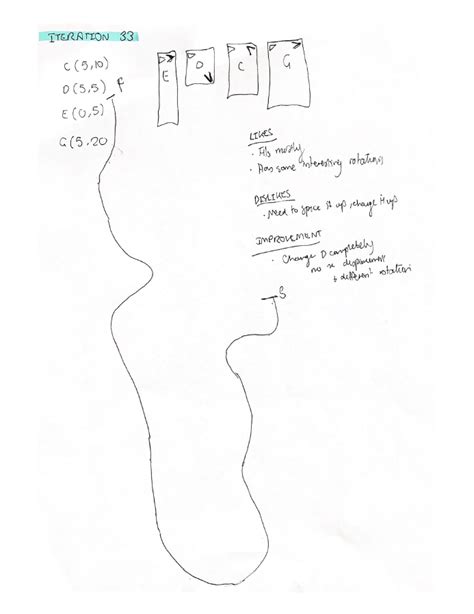 ITERATION 33
C(5,10)
D(5,5)
E(0,5)
G(5,20
F
E
D
C
G
LIKES
· Fits mostly
· Has some interesting rotations
DISLIKES
· Need to space it up, change it up
IMPROVEMENT
· Change D completely
no x displacement
+ different rotation
S